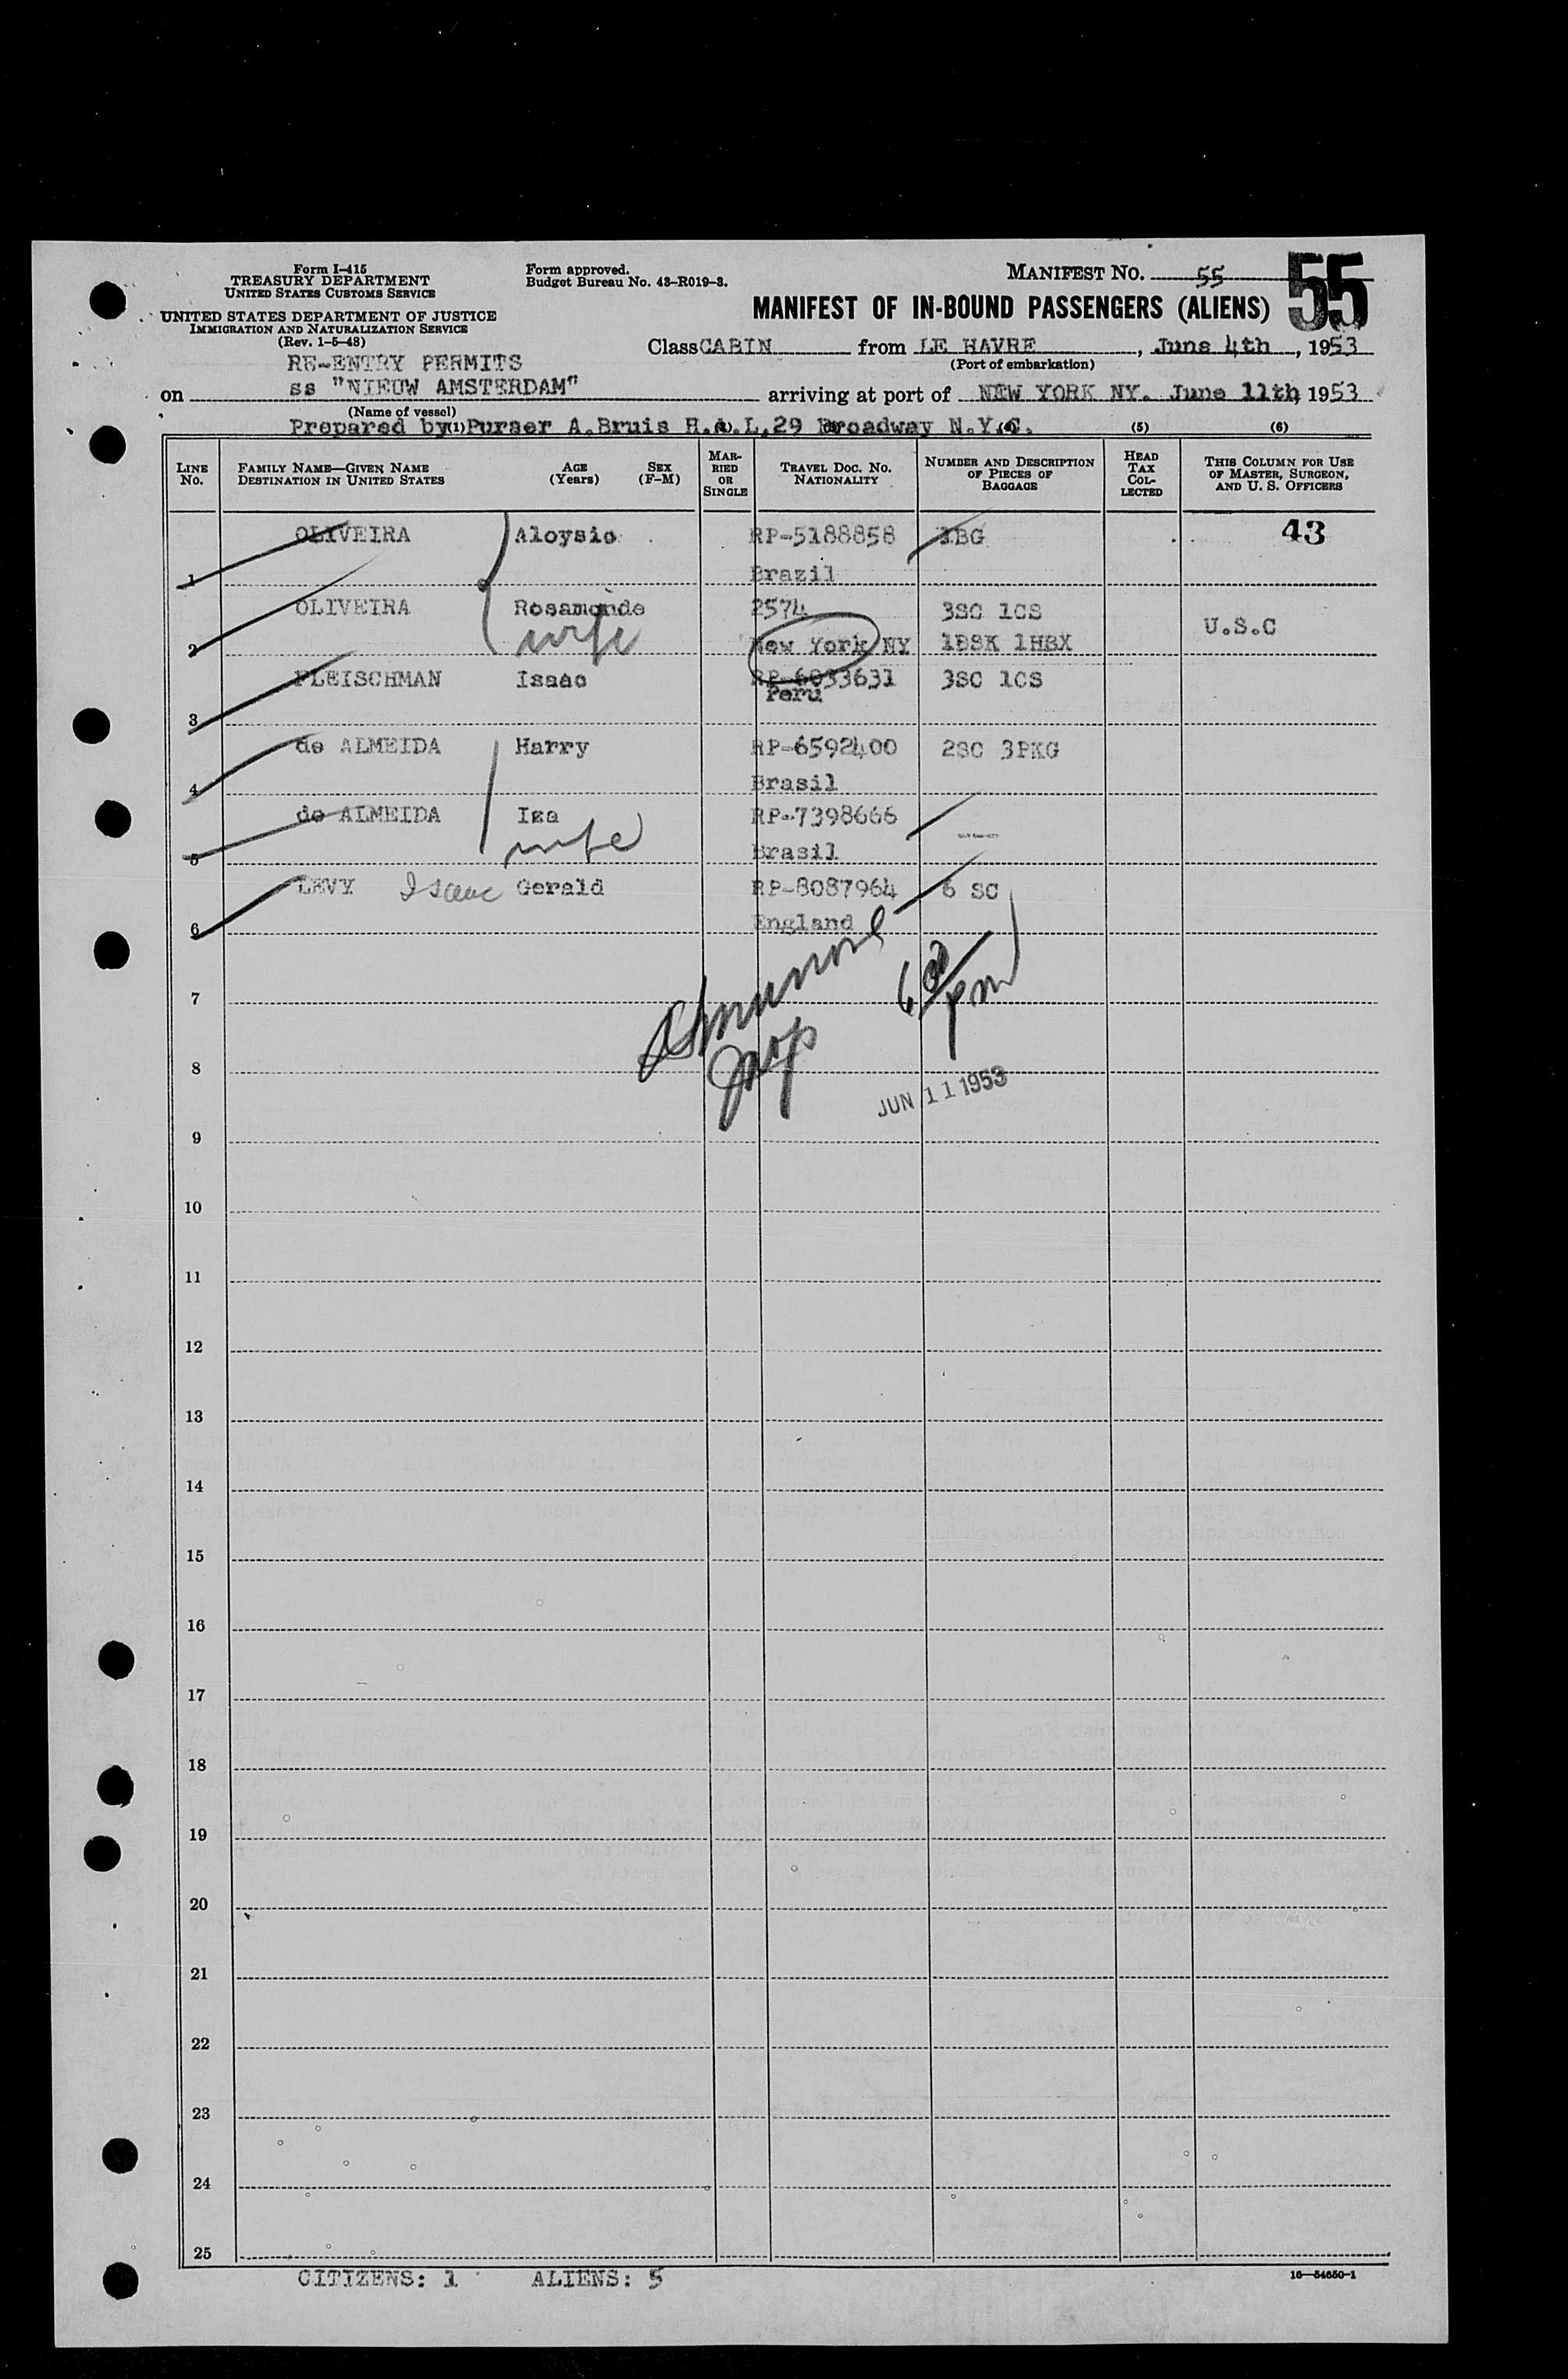 Form I-415
TREASURY DEPARTMENT
UNITED STATES CUSTOMS SERVICE
UNITED STATES DEPARTMENT OF JUSTICE
IMMIGRATION AND NATURALIZATION SERVICE
(Rev. 1-5-48)
Form approved.
Budget Bureau No. 43-R019-3.
MANIFEST NO. 55
55
MANIFEST OF IN-BOUND PASSENGERS (ALIENS)
RE-ENTRY PERMITS
Class CABIN from LE HAVRE, June 4th, 1953
(Port of embarkation)
on ss "NIEUW AMSTERDAM" arriving at port of NEW YORK NY. June 11th, 1953
(Name of vessel)
Prepared by: Purser A.Bruis H.A.L. 29 Broadway N.Y.C.
(1) (5) (6)
LINE No. FAMILY NAME—GIVEN NAME DESTINATION IN UNITED STATES AGE (Years) SEX (F-M) MARRIED OR SINGLE TRAVEL DOC. NO. NATIONALITY NUMBER AND DESCRIPTION OF PIECES OF BAGGAGE HEAD TAX COLLECTED THIS COLUMN FOR USE OF MASTER, SURGEON, AND U. S. OFFICERS
OLIVEIRA Aloysio RP-5188858 1BG 43
1 Brazil
OLIVEIRA Rosamonde 2574 3SC 1CS U.S.C
2 wife New York NY 1BSK 1HBX
FLEISCHMAN Isaac RP-6033631 3SC 1CS
3 Peru
de ALMEIDA Harry RP-6592400 2SC 3PKG
4 Brasil
de ALMEIDA Iza RP-7398666 ---
5 wife Brasil
LEVY Isaac Gerald RP-8087964 6 SC
6 England
6 00 pm
7
8
JUN 11 1953
9
10
11
12
13
14
15
16
17
18
19
20
21
22
23
24
25
CITIZENS: 1 ALIENS: 5
16—54650-1